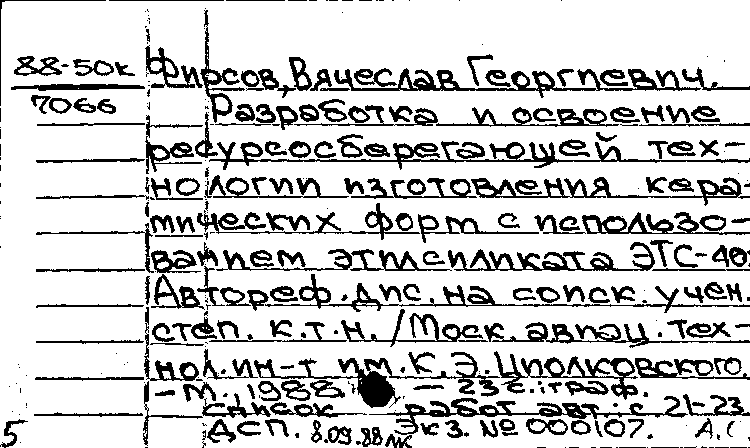 88-50к Фирсов, Вячеслав Георгиевич.
7066 Разработка и освоение
ресурсосберегающей тех-
нологии изготовления кера-
мических форм с использо-
ванием этилсиликата ЭТС-40:
Автореф. дис. на соиск. учен.
степ. к.т.н. / Моск. авиац. тех-
нол. ин-т им. К. Э. Циолковского.
- М., 1988. - 23 с.: граф.
список работ авт.: с. 21-23
5 ДСП. 8.09.88 Экз. № 000107.